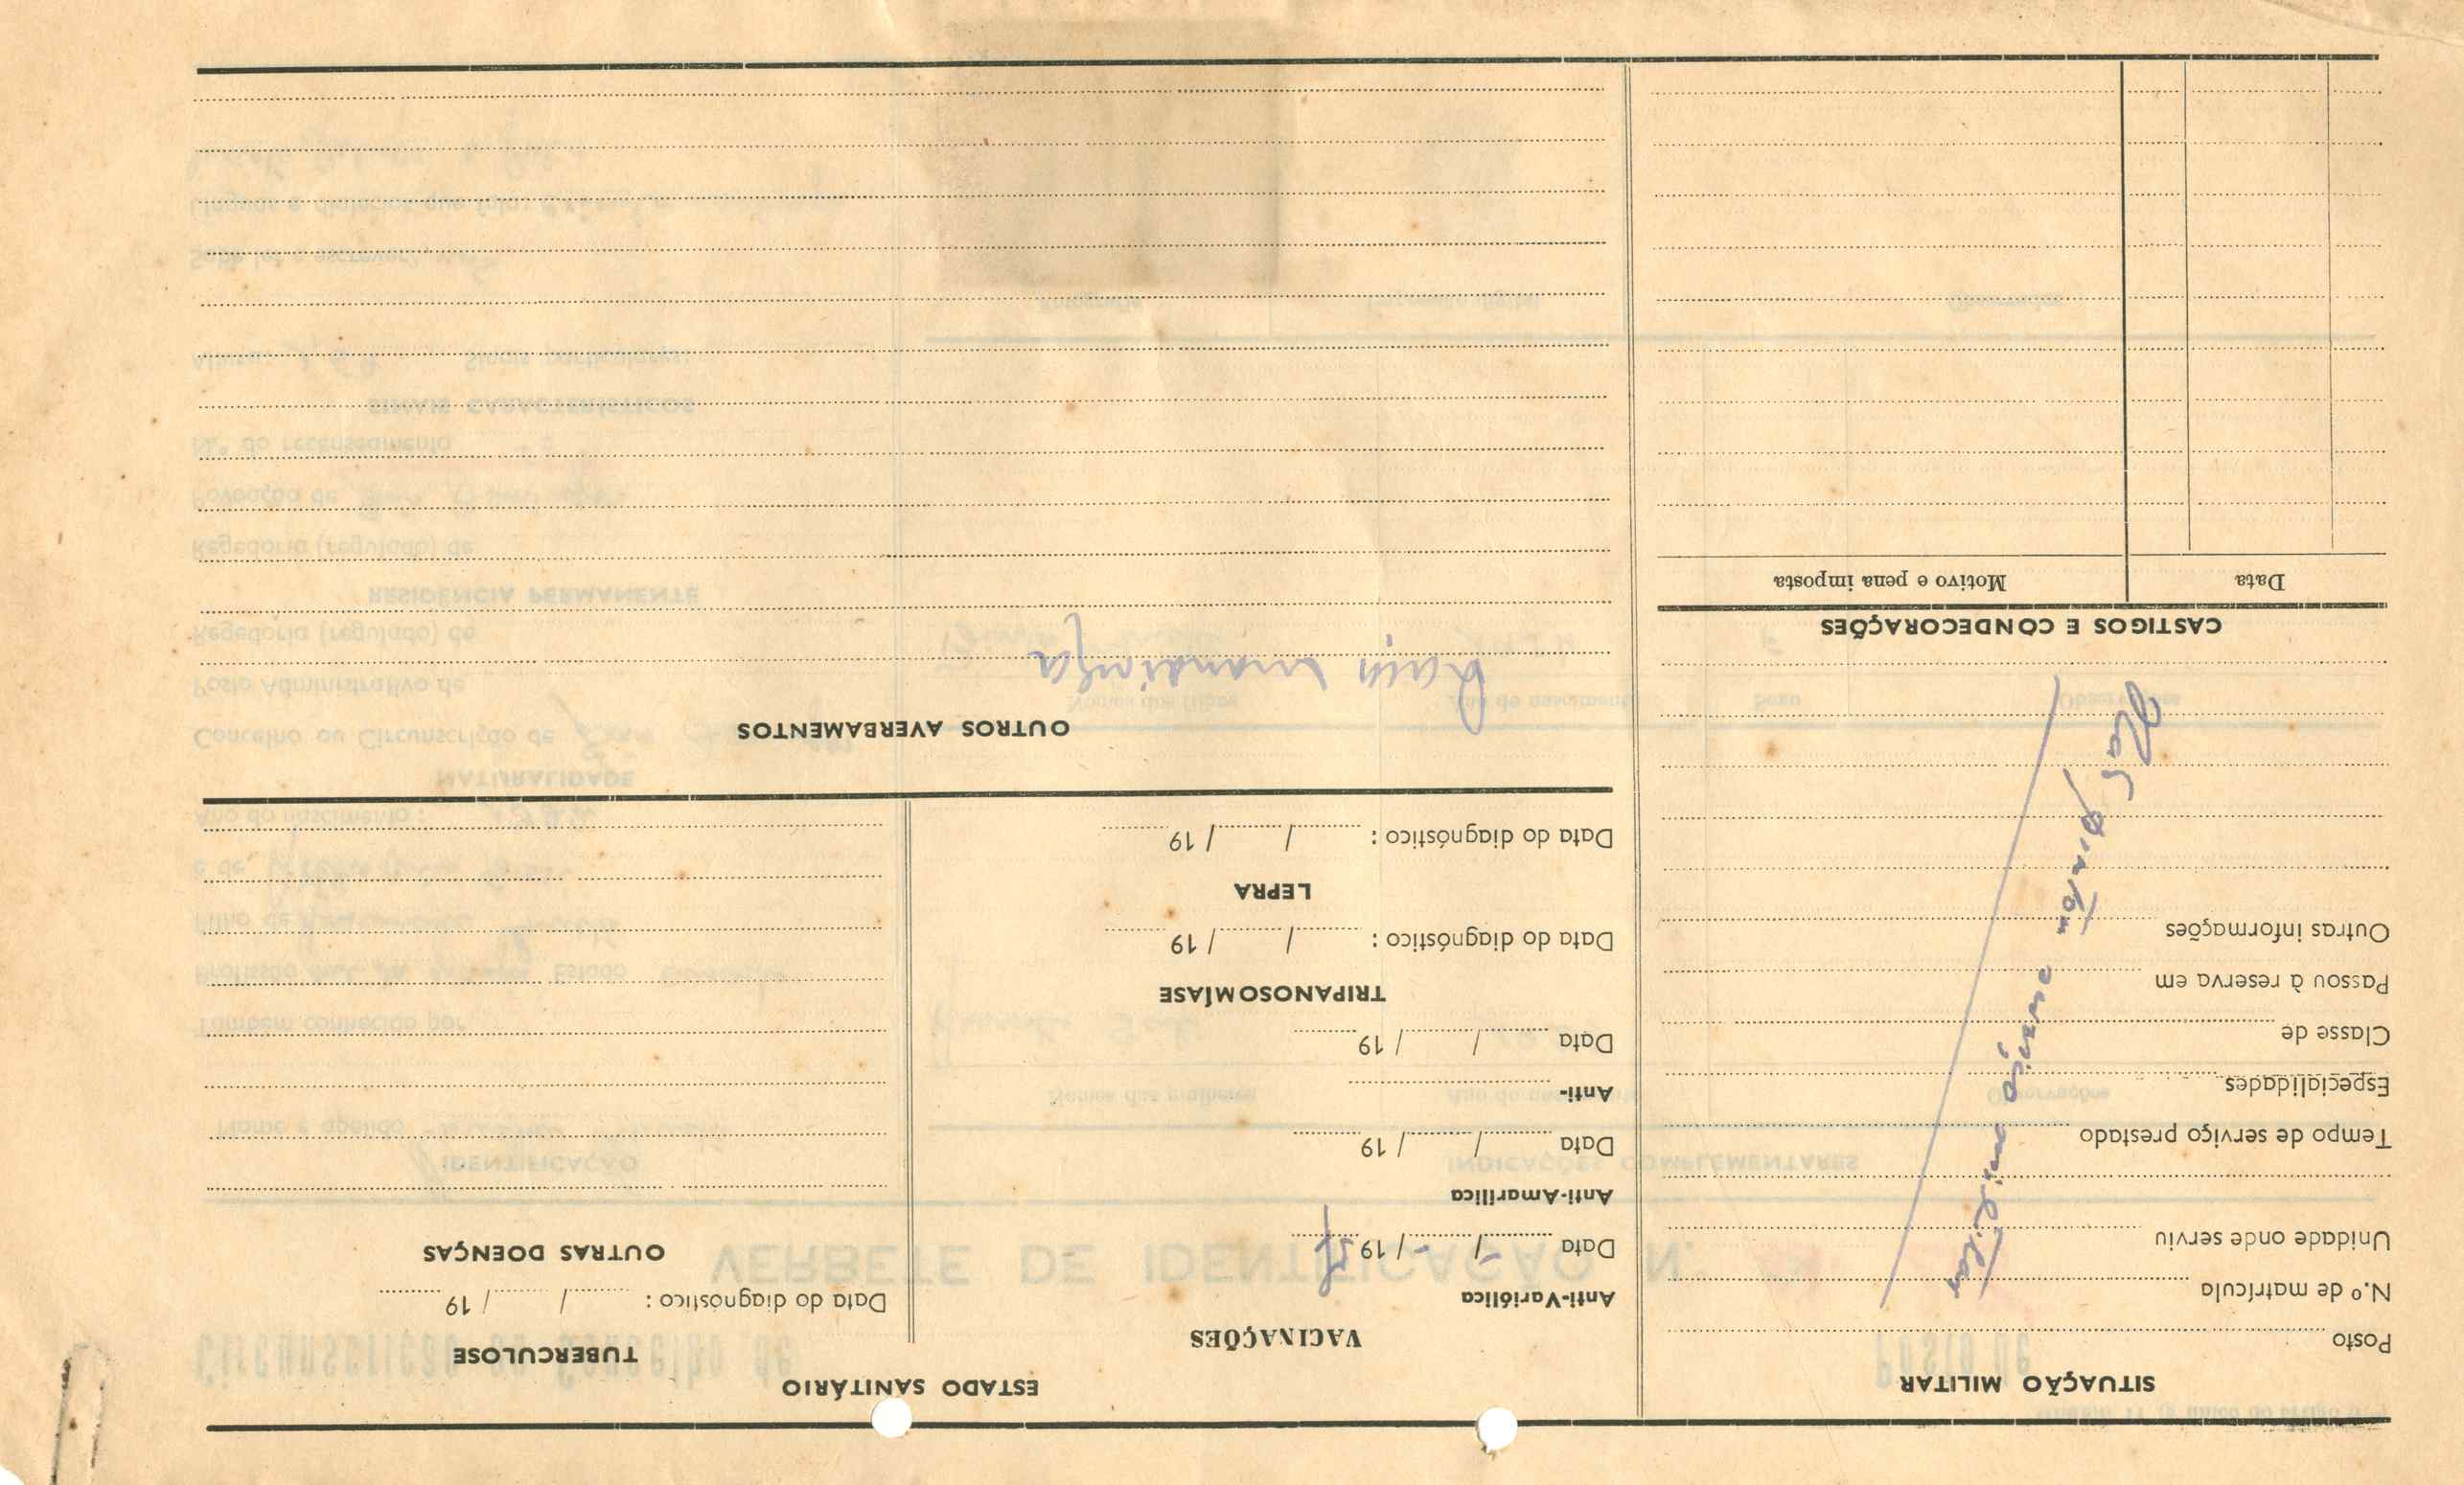 SITUAÇÃO MILITAR
Posto
N.º de matrícula
Unidade onde serviu
Tempo de serviço prestado
Especialidades
Classe de
Passou à reserva em
Outras informações
Não prestou serviço militar
CASTIGOS E CONDECORAÇÕES
Data Motivo e pena imposta
ESTADO SANITÁRIO
VACINAÇÕES
Anti-Variólica
Data - / - / 19
Anti-Amarílica
Data / / 19
Anti-
Data / / 19
TRIPANOSOMÍASE
Data do diagnóstico : / / 19
LEPRA
Data do diagnóstico : / / 19
TUBERCULOSE
Data do diagnóstico : / / 19
OUTRAS DOENÇAS
OUTROS AVERBAMENTOS
Raça mandinga